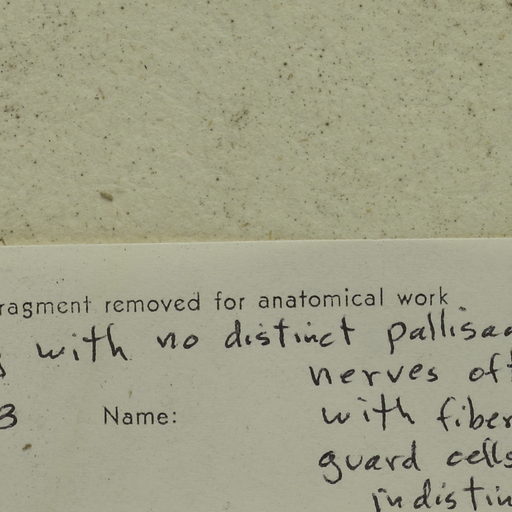 ragment removed for anatomical work
with no distinct pallisad
nerves oft
3 Name: with fiber
guard cells
indistin